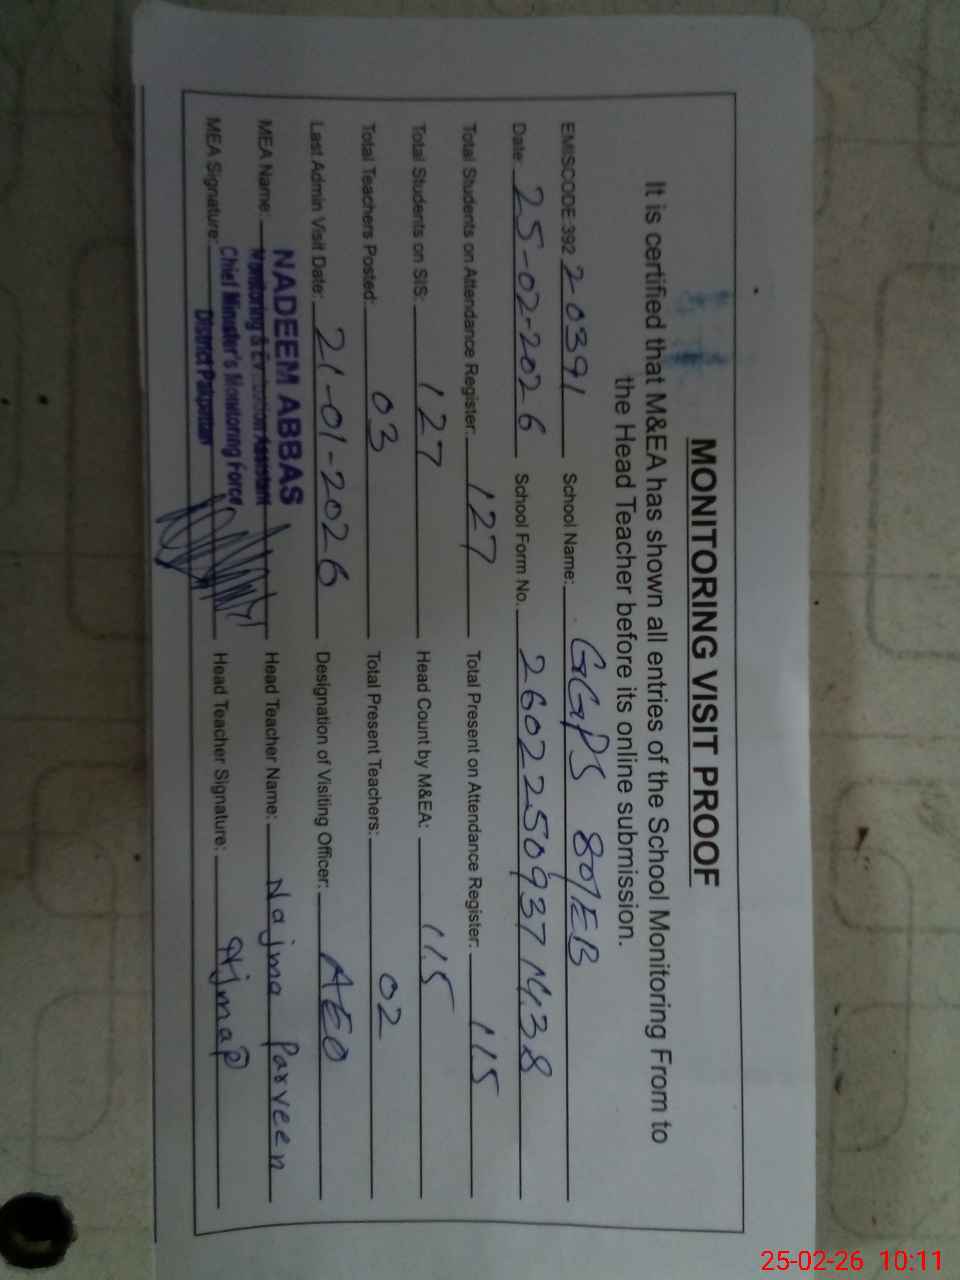 MONITORING VISIT PROOF
It is certified that M&EA has shown all entries of the School Monitoring From to
the Head Teacher before its online submission.
EMISCODE 392 20391 School Name: GGPS 80/EB
Date: 25-02-2026 School Form No. 26022509371438
Total Students on Attendance Register: 127 Total Present on Attendance Register: 115
Total Students on SIS: 127 Head Count by M&EA: 115
Total Teachers Posted: 03 Total Present Teachers: 02
Last Admin Visit Date: 21-01-2026 Designation of Visiting Officer: AEO
MEA Name: NADEEM ABBAS Head Teacher Name: Najma Parveen
Monitoring & Evaluation Assistant
MEA Signature: Chief Minister's Monitoring Force Head Teacher Signature:
District Pakpattan
25-02-26 10:11